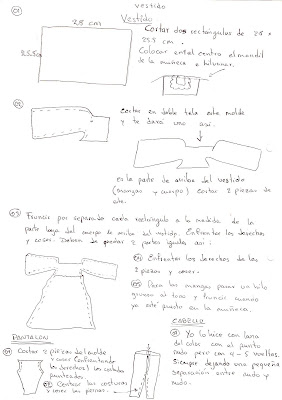 vestido
01
28 cm
Vestido
22.5 cm
Cortar dos rectángulos de 28 x
22.5 cm.
Colocar en el centro el mandil
de la muñeca e hilvanar.
02
Cortar en doble tela este molde
y te dará uno así.
es la parte de arriba del vestido
(mangas y cuerpo) cortar 2 piezas de
este.
03
Fruncir por separado cada rectángulo a la medida de la
parte baja del cuerpo de arriba del vestido. Enfrentar los derechos
y coser. Deben de quedar 2 partes iguales así:
04 Enfrentar los derechos de las
2 piezas y coser.
05 Para las mangas pasar un hilo
grueso al tono y fruncir cuando
ya esté puesto en la muñeca.
CABELLO
PANTALON
01 Cortar 2 piezas del molde
y coser enfrentando
los derechos los costados
punteados.
02 Centrar las costuras
y coser las piernas.
01 Yo lo hice con lana
del color con el punto
nudo pero con 4-5 vueltas.
Siempre dejando una pequeña
separación entre nudo y
nudo.